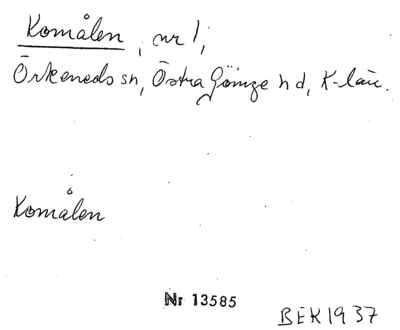 Komålen, nr 1,
Örkeneds sn, Östra Göinge hd, K-län.
Komålen
Nr 13585
BEK1937